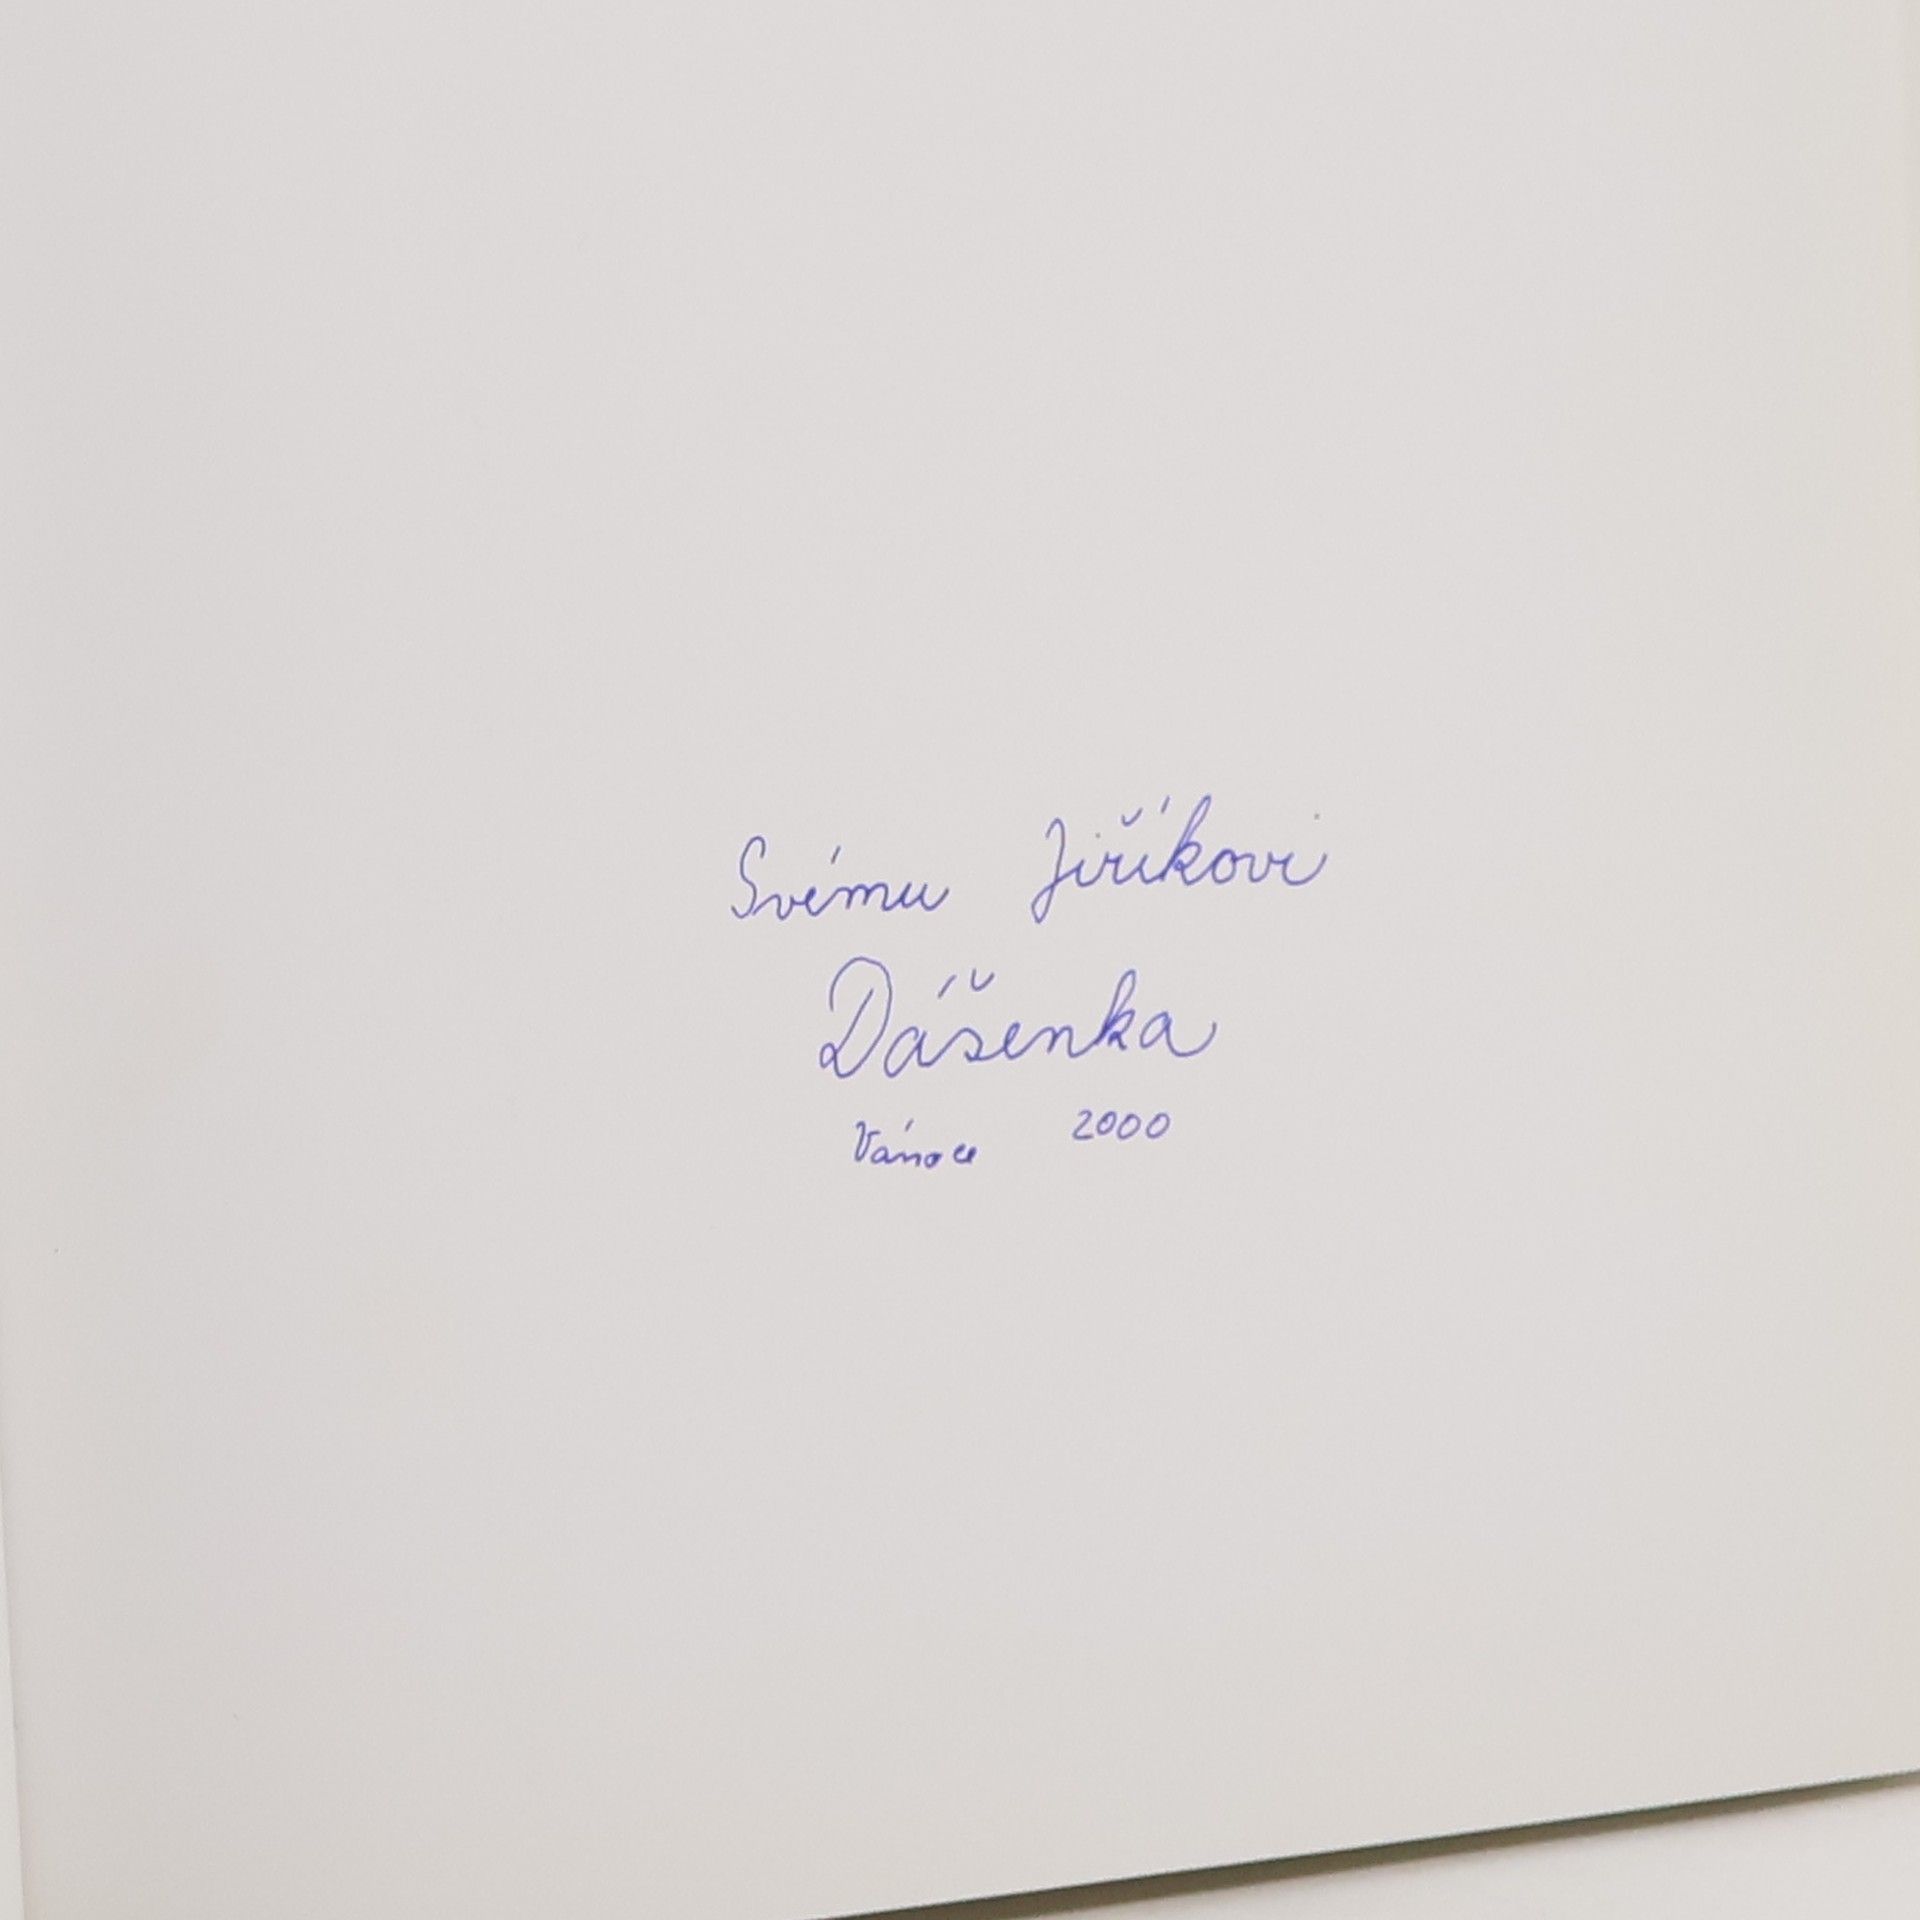 Svému Jiříkovi
Dášenka
Vánoce 2000